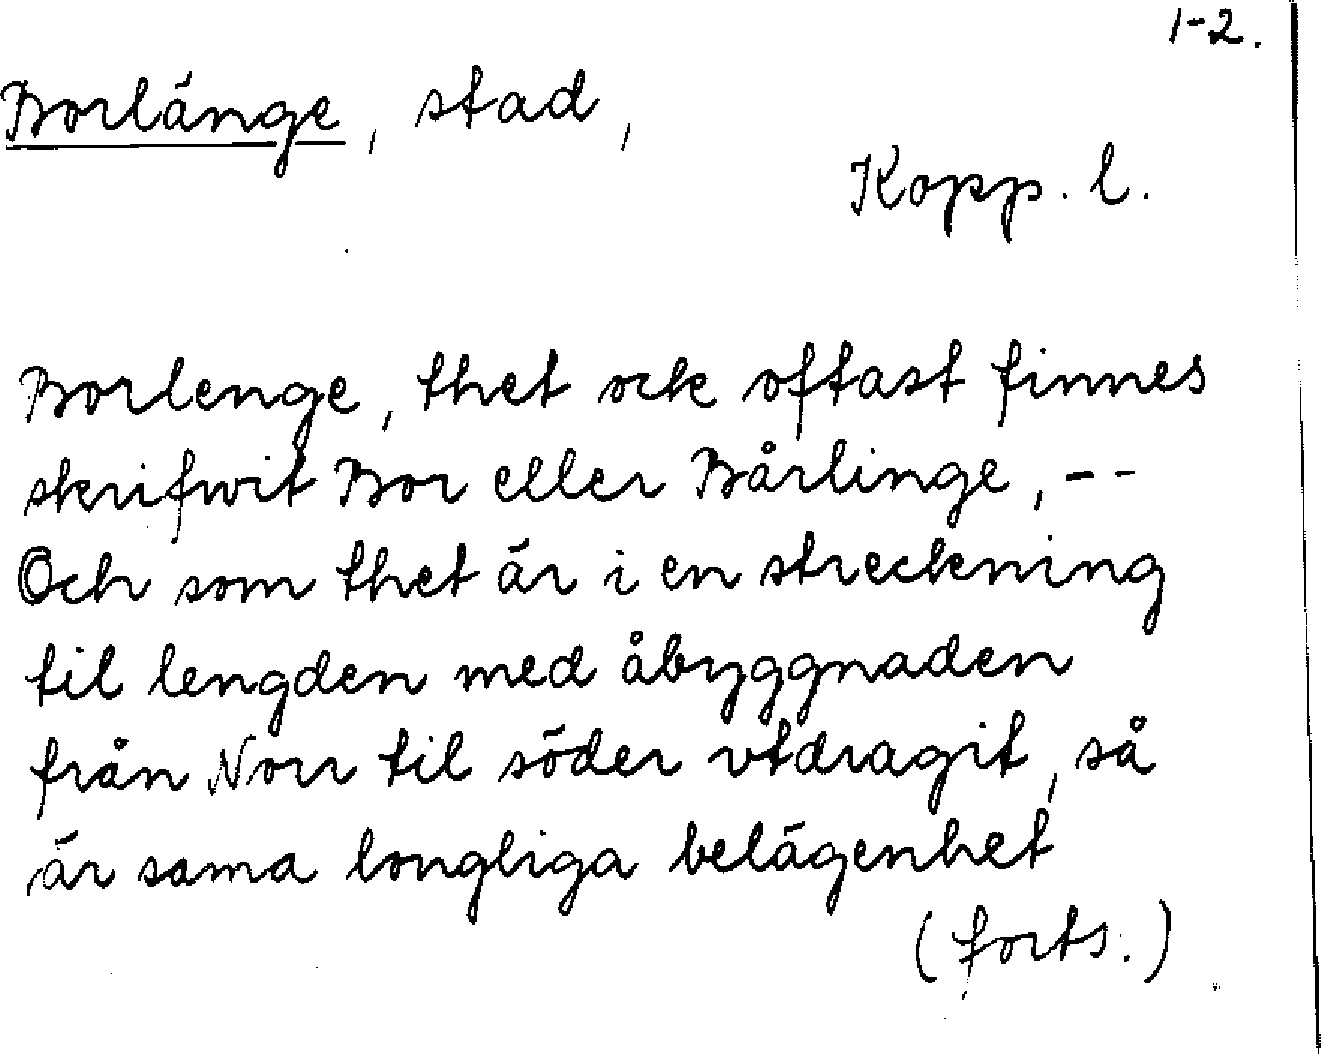 1-2.
Borlänge, stad,
Kopp. l.
Borlenge, thet ock oftast finnes
skrifwit Bor eller Bårlinge, --
Och som thet är i en streckning
til lengden med åbyggnaden
från Norr til söder vtdragit, så
är sama longliga belägenhet
(forts.)